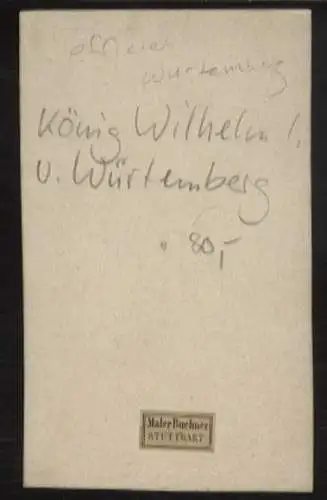 Officier
Würtemberg
König Wilhelm I.
v. Würtemberg
80,-
Maler Buchner
STUTTGART